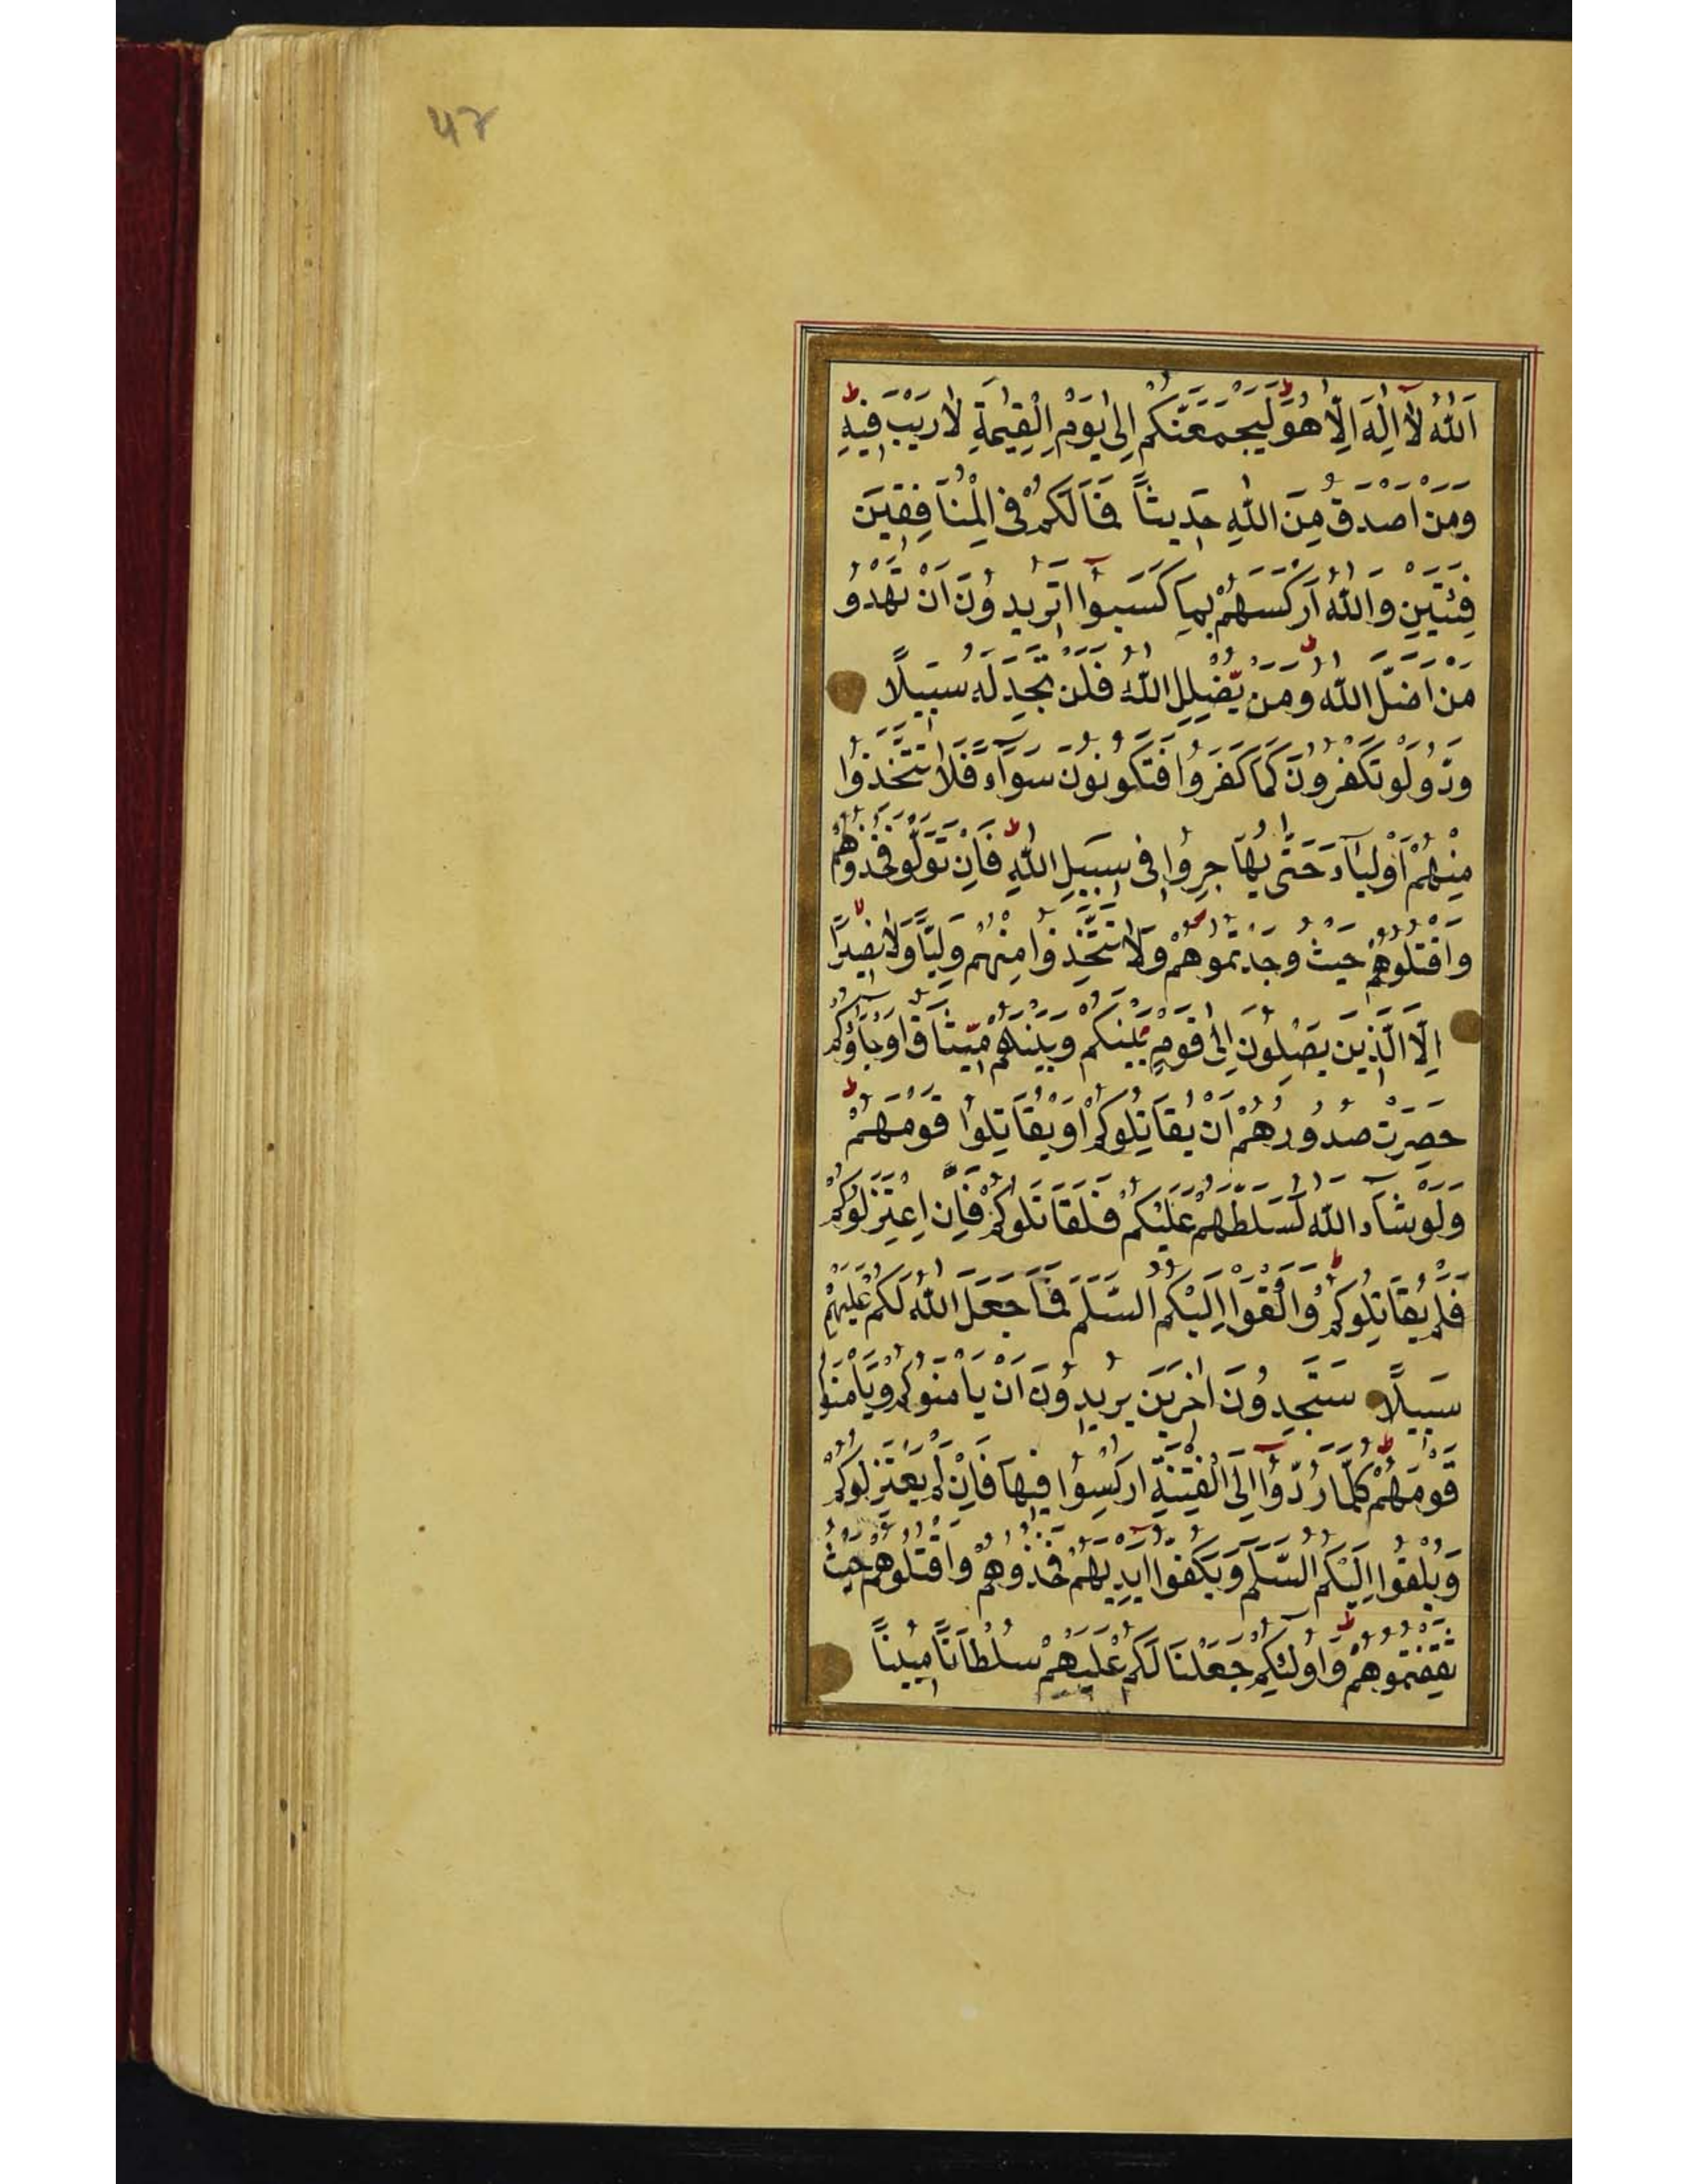 47
اَللّٰهُ لَآ اِلٰهَ اِلَّا هُوَ لَيَجْمَعَنَّكُمْ اِلٰى يَوْمِ الْقِيٰمَةِ لَا رَيْبَ فِيْهِ
وَمَنْ اَصْدَقُ مِنَ اللّٰهِ حَدِيثًا فَمَا لَكُمْ فِى الْمُنَافِقِيْنَ
فِئَتَيْنِ وَاللّٰهُ اَرْكَسَهُمْ بِمَا كَسَبُوْا اَتُرِيْدُوْنَ اَنْ تَهْدُوْ
مَنْ اَضَلَّ اللّٰهُ وَمَنْ يُّضْلِلِ اللّٰهُ فَلَنْ تَجِدَ لَهُ سَبِيْلًا
وَدُّوْ لَوْ تَكْفُرُوْنَ كَمَا كَفَرُوْا فَتَكُوْنُوْنَ سَوَآءً فَلَا تَتَّخِذُوْا
مِنْهُمْ اَوْلِيَآءَ حَتّٰى يُهَاجِرُوْا فِى سَبِيْلِ اللّٰهِ فَاِنْ تَوَلَّوْ فَخُذُوْهُمْ
وَاقْتُلُوْهُمْ حَيْثُ وَجَدْتُمُوْهُمْ وَلَا تَتَّخِذُوْا مِنْهُمْ وَلِيًّا وَّلَا نَصِيْرًا
اِلَّا الَّذِيْنَ يَصِلُوْنَ اِلٰى قَوْمٍ بَيْنَكُمْ وَبَيْنَهُمْ مِيْثَاقٌ اَوْ جَآؤُكُمْ
حَصِرَتْ صُدُوْرُهُمْ اَنْ يُقَاتِلُوْكُمْ اَوْ يُقَاتِلُوْا قَوْمَهُمْ
وَلَوْ شَآءَ اللّٰهُ لَسَلَّطَهُمْ عَلَيْكُمْ فَلَقَاتَلُوْكُمْ فَاِنْ اعْتَزَلُوْكُمْ
فَلَمْ يُقَاتِلُوْكُمْ وَاَلْقَوْا اِلَيْكُمُ السَّلَمَ فَمَا جَعَلَ اللّٰهُ لَكُمْ عَلَيْهِمْ
سَبِيْلًا سَتَجِدُوْنَ اٰخَرِيْنَ يُرِيْدُوْنَ اَنْ يَاْمَنُوْكُمْ وَيَاْمَنُوْا
قَوْمَهُمْ كُلَّمَا رُدُّوْآ اِلَى الْفِتْنَةِ اُرْكِسُوْا فِيْهَا فَاِنْ لَمْ يَعْتَزِلُوْكُمْ
وَيُلْقُوْا اِلَيْكُمُ السَّلَمَ وَيَكُفُّوْا اَيْدِيَهُمْ فَخُذُوْهُمْ وَاقْتُلُوْهُمْ حَيْثُ
ثَقِفْتُمُوْهُمْ وَاُولٰئِكُمْ جَعَلْنَا لَكُمْ عَلَيْهِمْ سُلْطَانًا مُبِيْنًا